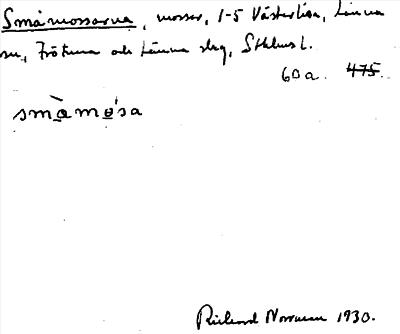 Småmossarna, mossar, 1-5 Västerlisa, Länna
sn, Frötuna och Länna slag, Sthlms l.
60 a. 475.
småmosa
Richard Norman 1930.